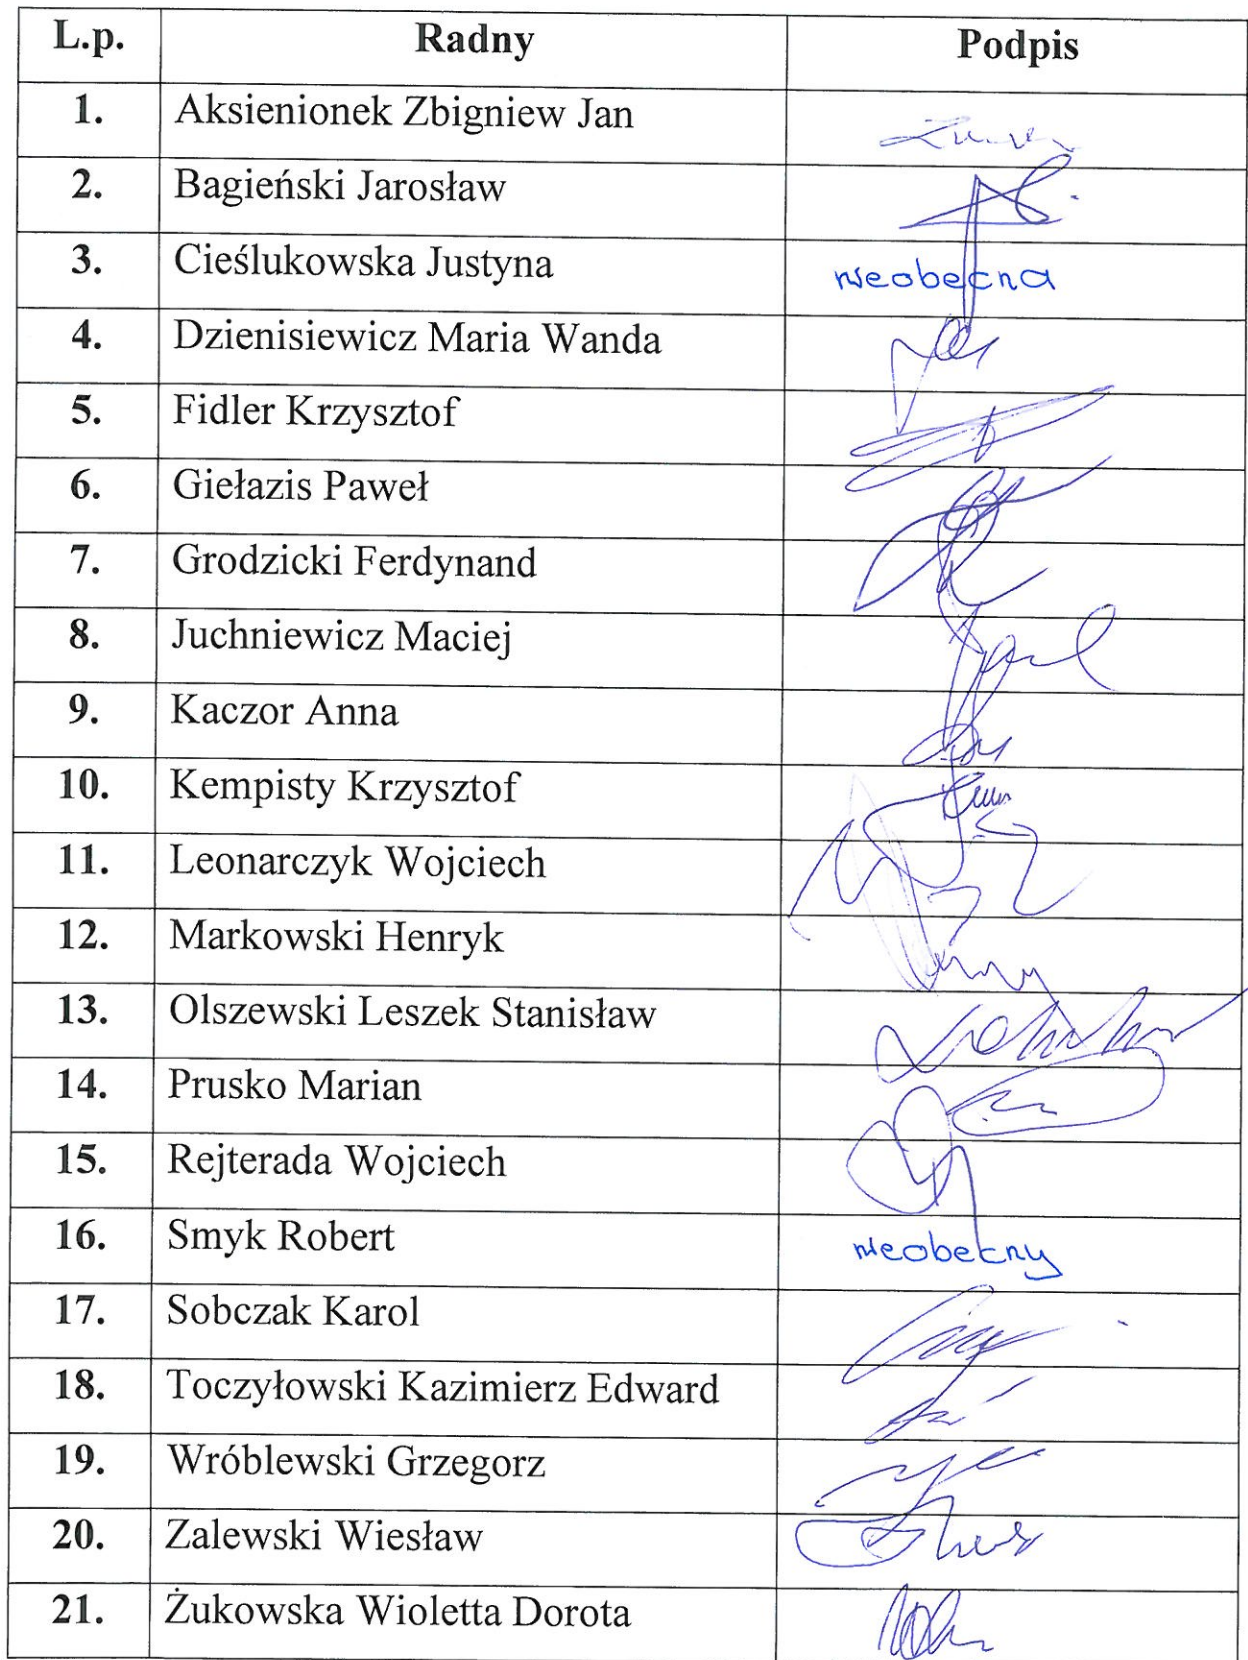 L.p. Radny Podpis
1. Aksienionek Zbigniew Jan
2. Bagieński Jarosław
3. Cieślukowska Justyna nieobecna
4. Dzienisiewicz Maria Wanda
5. Fidler Krzysztof
6. Giełazis Paweł
7. Grodzicki Ferdynand
8. Juchniewicz Maciej
9. Kaczor Anna
10. Kempisty Krzysztof
11. Leonarczyk Wojciech
12. Markowski Henryk
13. Olszewski Leszek Stanisław
14. Prusko Marian
15. Rejterada Wojciech
16. Smyk Robert nieobecny
17. Sobczak Karol
18. Toczyłowski Kazimierz Edward
19. Wróblewski Grzegorz
20. Zalewski Wiesław
21. Żukowska Wioletta Dorota